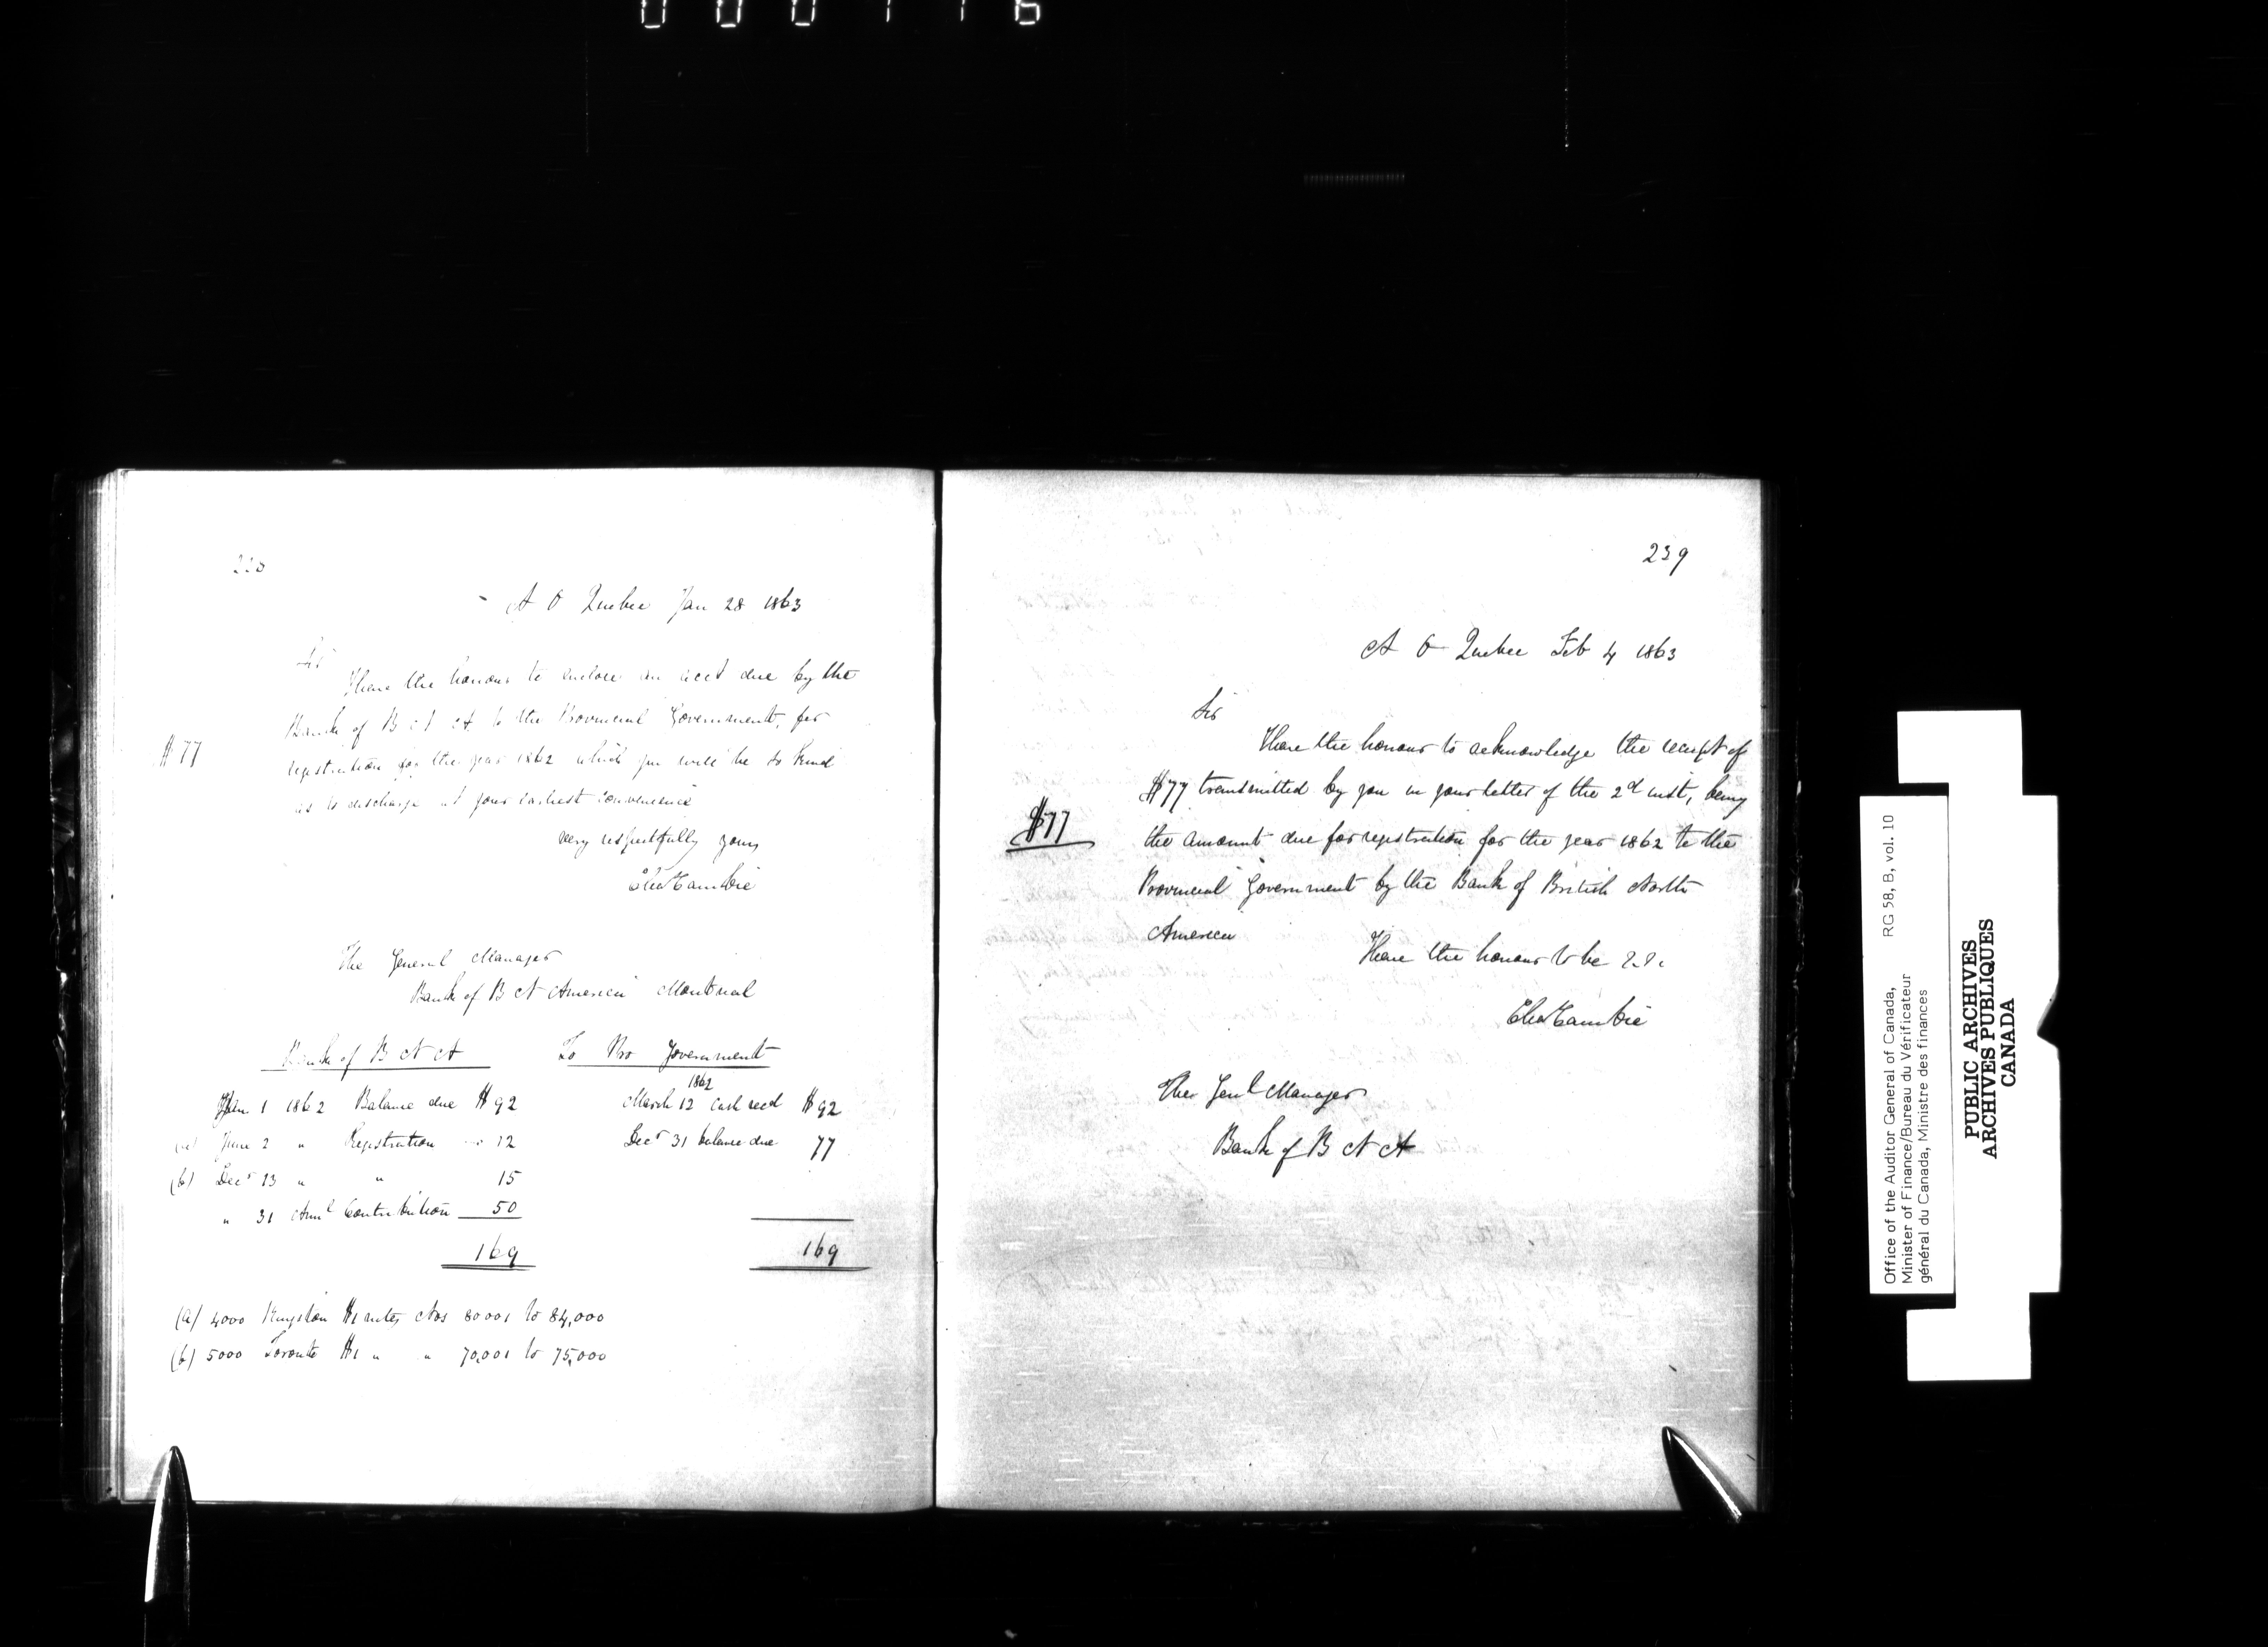 A O Quebec Jan 28 1863
Sir
I have the honour to enclose an acct due by the
Bank of B N A to the Provincial Government, for
$77
registration for the year 1862 which you will be so kind
as to discharge at your earliest convenience
very respectfully yours
Chas Cambie
The General Manager
Bank of B N America Montreal
Bank of B N A To Pro Government
Jan. 1 1862 Balance due $92
(a) June 2 " Registration 12
(b) Decr 13 " " 15
" 31 Annl Contribution 50
169
1862
March 12 Cash recd $92
Decr 31 balance due 77
169
(a) 4000 Kingston $1 notes Nos 80001 to 84,000
(b) 5000 Toronto $1 " " 70,001 to 75,000
239
A O Quebec Feb 4 1863
Sir
I have the honour to acknowledge the receipt of
$77 transmitted by you in your letter of the 2d inst, being
$77
the amount due for registration for the year 1862 to the
Provincial Government by the Bank of British North
America
I have the honour to be &c
Chas Cambie
The Genl Manager
Bank of B N A
Office of the Auditor General of Canada, RG 58, B, vol. 10
Minister of Finance/Bureau du Vérificateur
général du Canada, Ministre des finances
PUBLIC ARCHIVES
ARCHIVES PUBLIQUES
CANADA